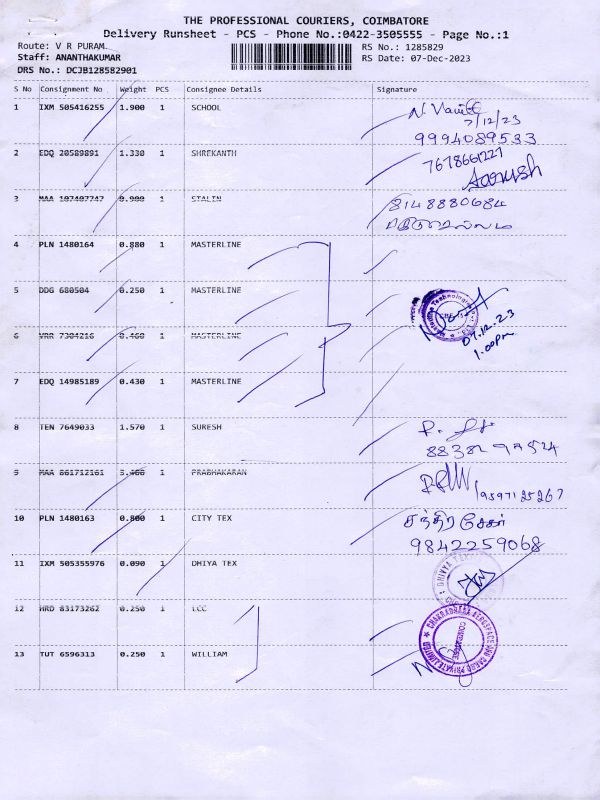 THE PROFESSIONAL COURIERS, COIMBATORE
Delivery Runsheet - PCS - Phone No.:0422-3505555 - Page No.:1
Route: V R PURAM. RS No.: 1285829
Staff: ANANTHAKUMAR RS Date: 07-Dec-2023
DRS No.: DCJB128582901
S No Consignment No Weight PCS Consignee Details Signature
1 IXM 505416255 1.900 1 SCHOOL
7/12/23
9994089533
2 EDQ 20589891 1.330 1 SHREKANTH 7678661227
3 MAA 107407747 0.900 1 STALIN 8148880684
4 PLN 1480164 0.880 1 MASTERLINE
5 DDG 680504 0.250 1 MASTERLINE
07.12.23
1.00pm
6 VRR 7304216 0.460 1 MASTERLINE
7 EDQ 14985189 0.430 1 MASTERLINE
8 TEN 7649033 1.570 1 SURESH
9 MAA 861712161 1 PRABHAKARAN
9597125267
10 PLN 1480163 0.800 1 CITY TEX சந்திர சேகர்
9842259068
11 IXM 505355976 0.090 1 DHIYA TEX
12 HRD 83173262 0.250 1 LCC
13 TUT 6596313 0.250 1 WILLIAM